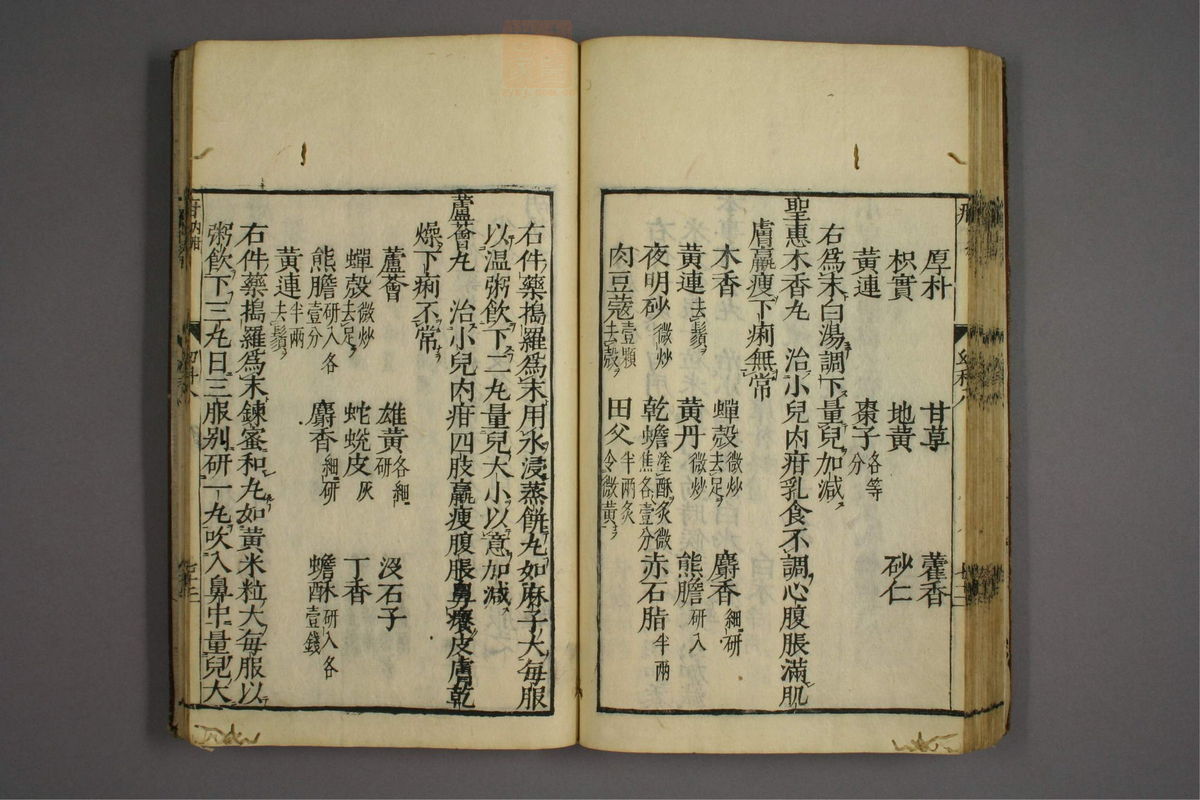 厚朴 甘草 藿香
枳實 地黃 砂仁
黃連 棗子各等分
右爲末白湯調下量兒加減
聖惠木香丸 治小兒内疳乳食不調心腹脹滿肌
膚羸瘦下痢無常
木香 蟬殼微炒去足 麝香細研
黃連去鬚 黃丹微炒 熊膽研入
夜明砂微炒 乾蟾塗酥炙微焦各壹分 赤石脂半兩
肉豆蔻壹顆去殼 田父半兩炙令微黃
右件藥搗羅爲末用水浸蒸餅丸如麻子大每服
以温粥飲下二丸量兒大小以意加減
蘆薈丸 治小兒内疳四肢羸瘦腹脹鼻癢皮膚乾
燥下痢不常
蘆薈 雄黃各細研 沒石子
蟬殼微炒去足 蛇蛻皮灰 丁香
熊膽研入各壹分 麝香細研 蟾酥研入各壹錢
黃連半兩去鬚
右件藥搗羅爲末鍊蜜和丸如黃米粒大每服以
粥飲下三丸日三服别研一丸吹入鼻中量兒大